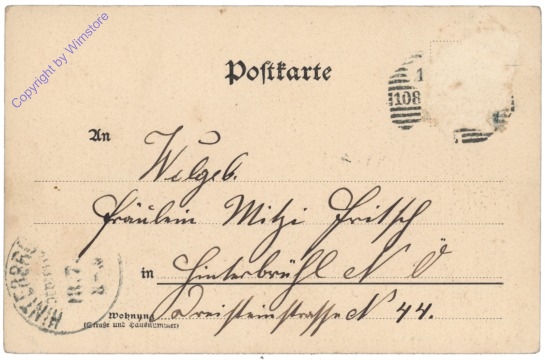 Copyright by Wimstore
Postkarte
108
An
Wolgeb.
Fräulein Mitzi Fritsch
in Hinterbrühl N Ö
Wohnung
(Straße und Hausnummer)
Dreisteinstrasse N 44.
HINTERBR
18.7